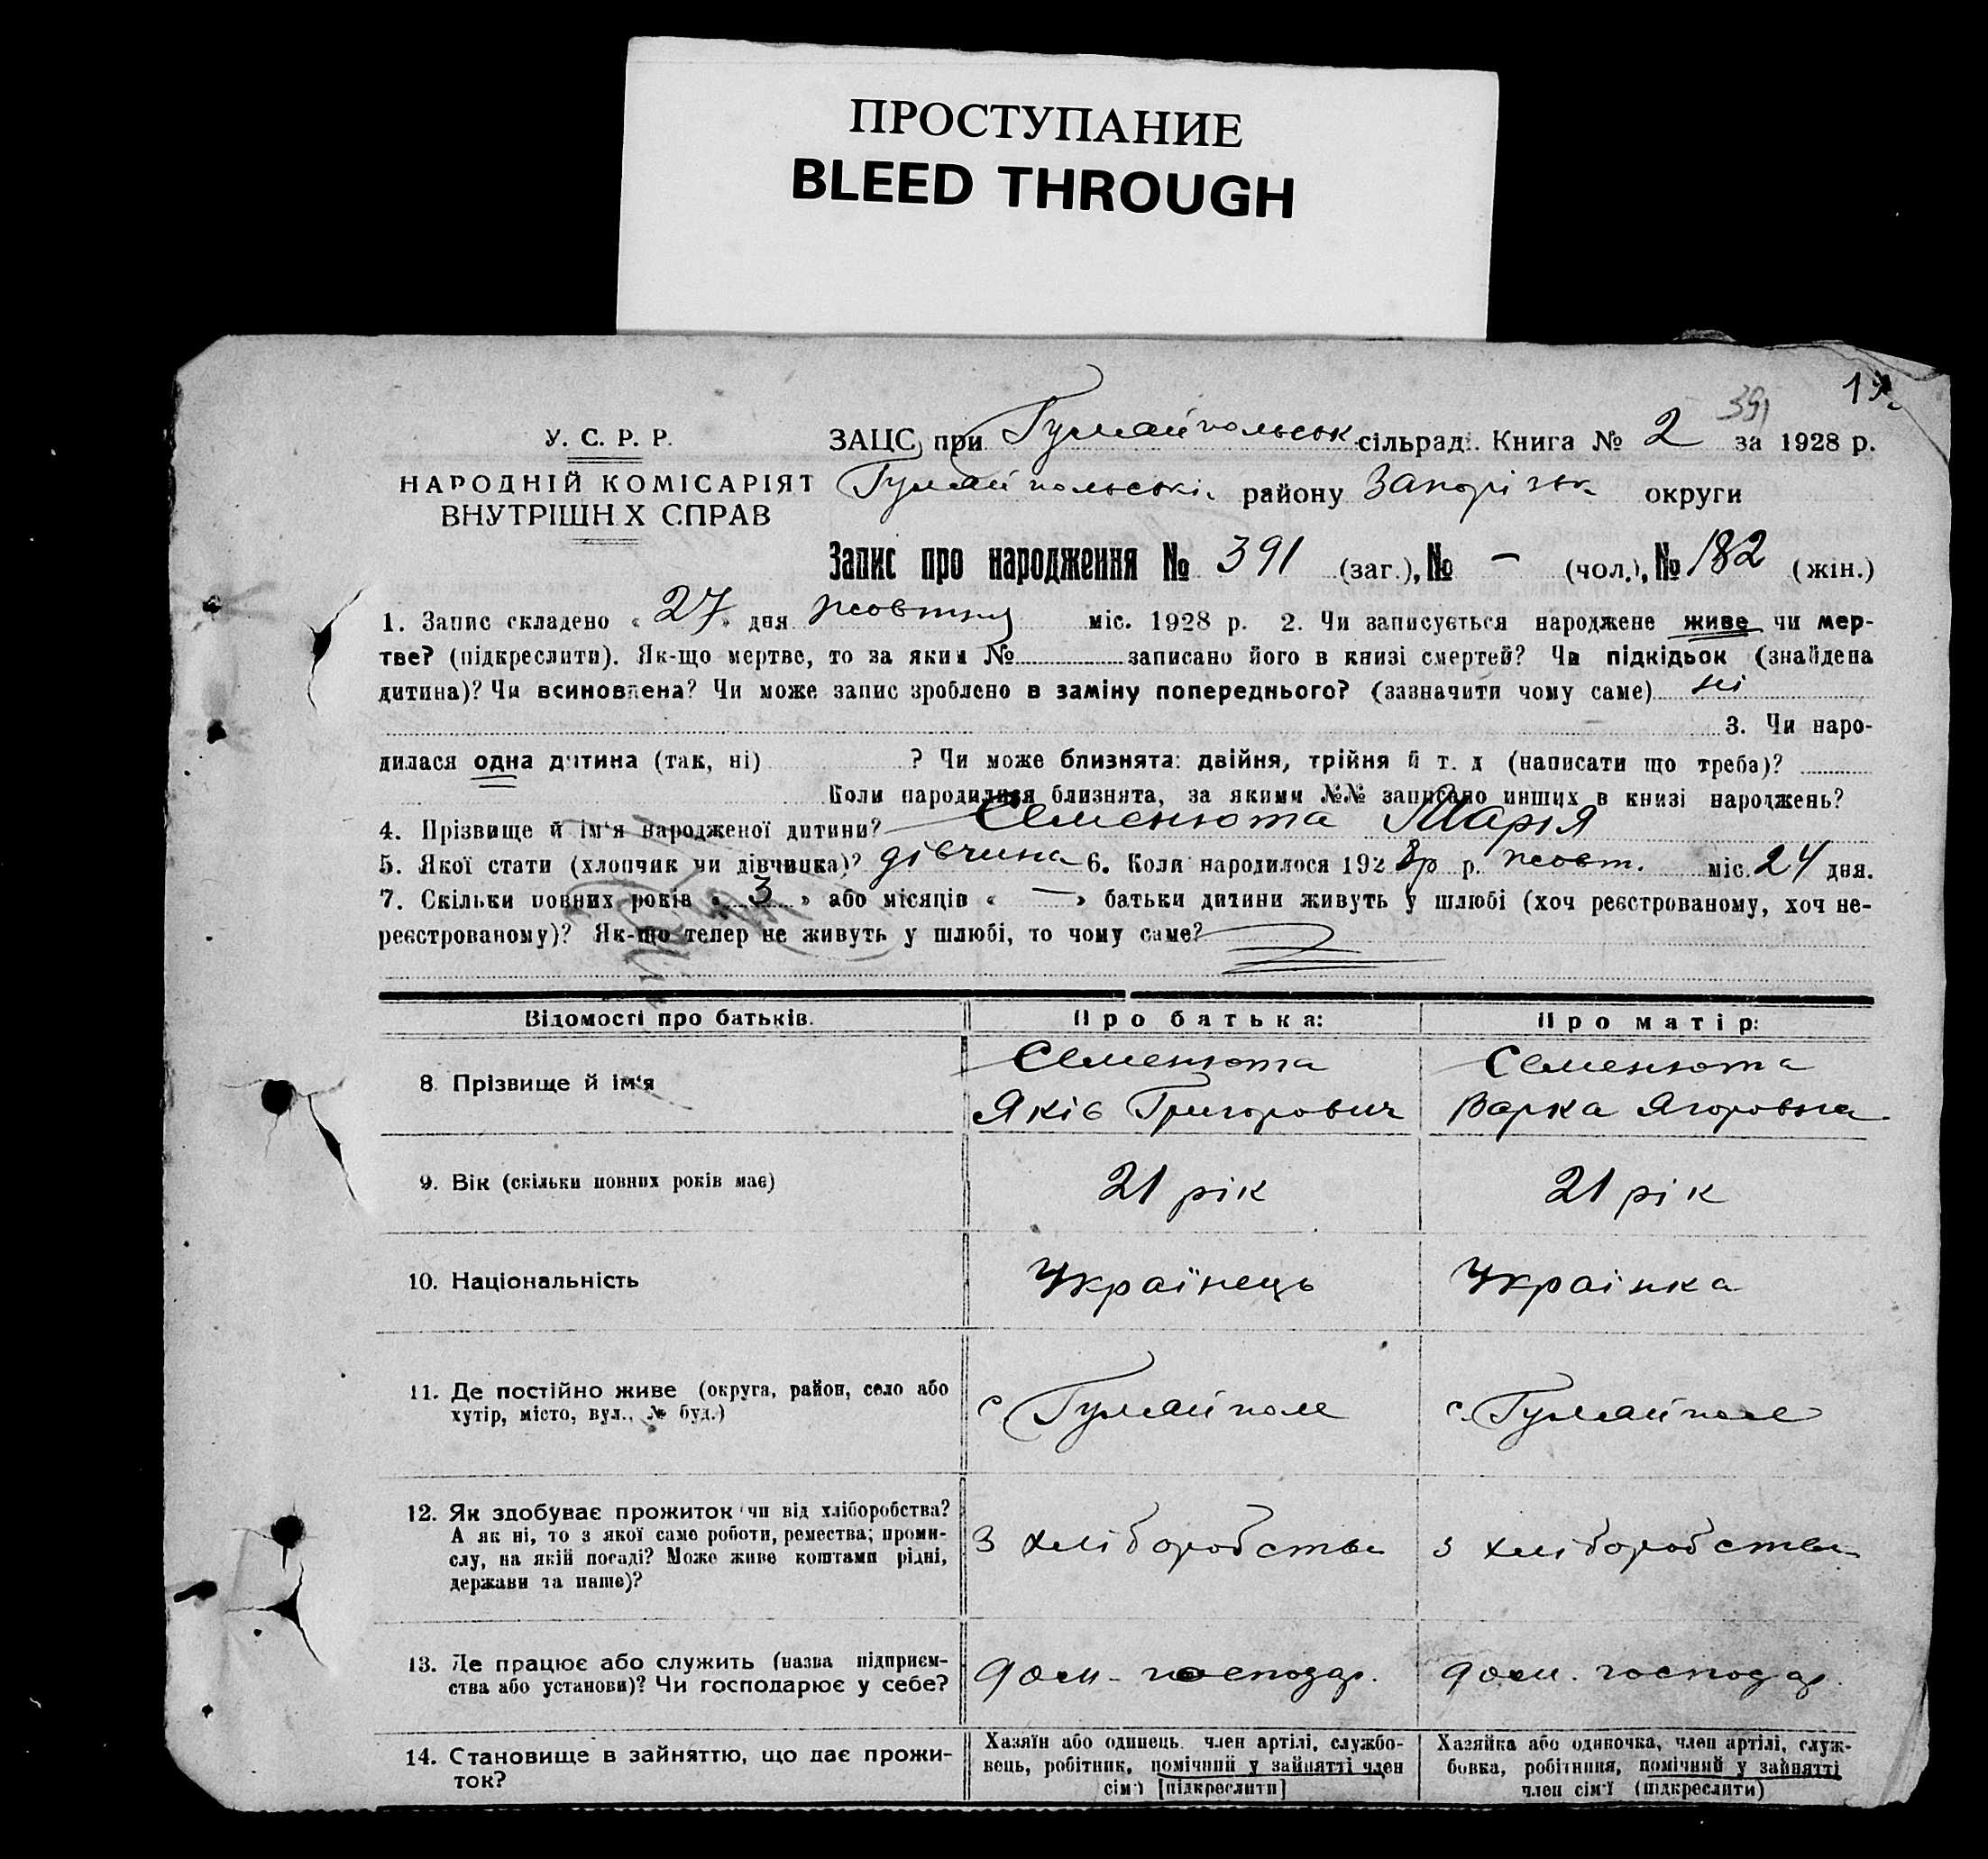 ПРОСТУПАНИЕ
BLEED THROUGH
391
У. С. Р. Р.
НАРОДНІЙ КОМІСАРІЯТ
ВНУТРІШН Х СПРАВ
ЗАЦС при Гуляйпольськ. сільраді. Книга № 2 за 1928 р.
Гуляйпольськ. району Запорізьк округи
Запис про народження № 391 (заг.), № - (чол.), № 182 (жін.)
1. Запис складено « 27 » дня жовтня міс. 1928 р. 2. Чи записується народжене живе чи мер-
тве? (підкреслити). Як-що мертве, то за яким № записано його в книзі смертей? Чи підкідьок (знайдена
дитина)? Чи всиновлена? Чи може запис зроблено в заміну попереднього? (зазначити чому саме) ні
3. Чи наро-
дилася одна дитина (так, ні) ? Чи може близнята: двійня, трійня й т. д (написати що треба)?
Коли народилися близнята, за якими №№ записано инших в книзі народжень?
4. Прізвище й ім'я народженої дитини? Семенюта Марія
5. Якої стати (хлопчик чи дівчинка)? дівчина 6. Коли народилося 1928р р. жовт. міс. 24 дня.
7. Скільки повних років « 3 » або місяців « — » батьки дитини живуть у шлюбі (хоч реєстрованому, хоч не-
реєстрованому)? Як-що тепер не живуть у шлюбі, то чому саме?
Відомості про батьків.
Про батька:
Про матір:
8. Прізвище й ім'я
Семенюта
Яків Григорович
Семенюта
Варка Ягоровна
9. Вік (скільки повних років має)
21 рік
21 рік
10. Національність
Українець
Українка
11. Де постійно живе (округа, район, село або
хутір, місто, вул., № буд.)
с. Гуляйполе
с. Гуляйполе
12. Як здобуває прожиток чи від хліборобства?
А як ні, то з якої саме роботи, ремества; проми-
слу, на якій посаді? Може живе коштами рідні,
держави та инше)?
З хліборобства
з хліборобства
13. Де працює або служить (назва підприєм-
ства або установи)? Чи господарює у себе?
дом - господар.
дом. господар.
14. Становище в зайняттю, що дає прожи-
ток?
Хазяїн або одинець член артілі, службо-
вець, робітник, помічний у зайнятті член
сім'ї [підкреслити]
Хазяйка або одиночка, член артілі, служ-
бовка, робітниця, помічний у зайнятті
член сім'ї (підкреслити)